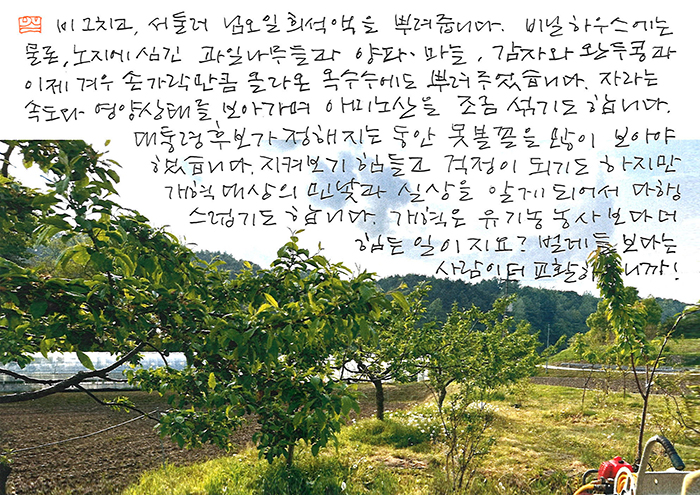 비 그치고, 서둘러 님오일 희석액을 뿌려줍니다. 비닐하우스에는
물론, 노지에 심긴 과일나무들과 양파·마늘, 감자와 완두콩과
이제 겨우 손가락만큼 올라온 옥수수에도 뿌려주었습니다. 자라는
속도와 영양상태를 보아가며 아미노산을 조금 섞기도 합니다.
대통령후보가 정해지는 동안 못볼꼴을 많이 보아야
했습니다. 지켜보기 힘들고 걱정이 되기도 하지만
개혁대상의 민낯과 실상을 알게 되어서 다행
스럽기도 합니다. 개혁은 유기농 농사보다 더
힘든 일이지요? 벌레들보다는
사람이 더 교활하니까!